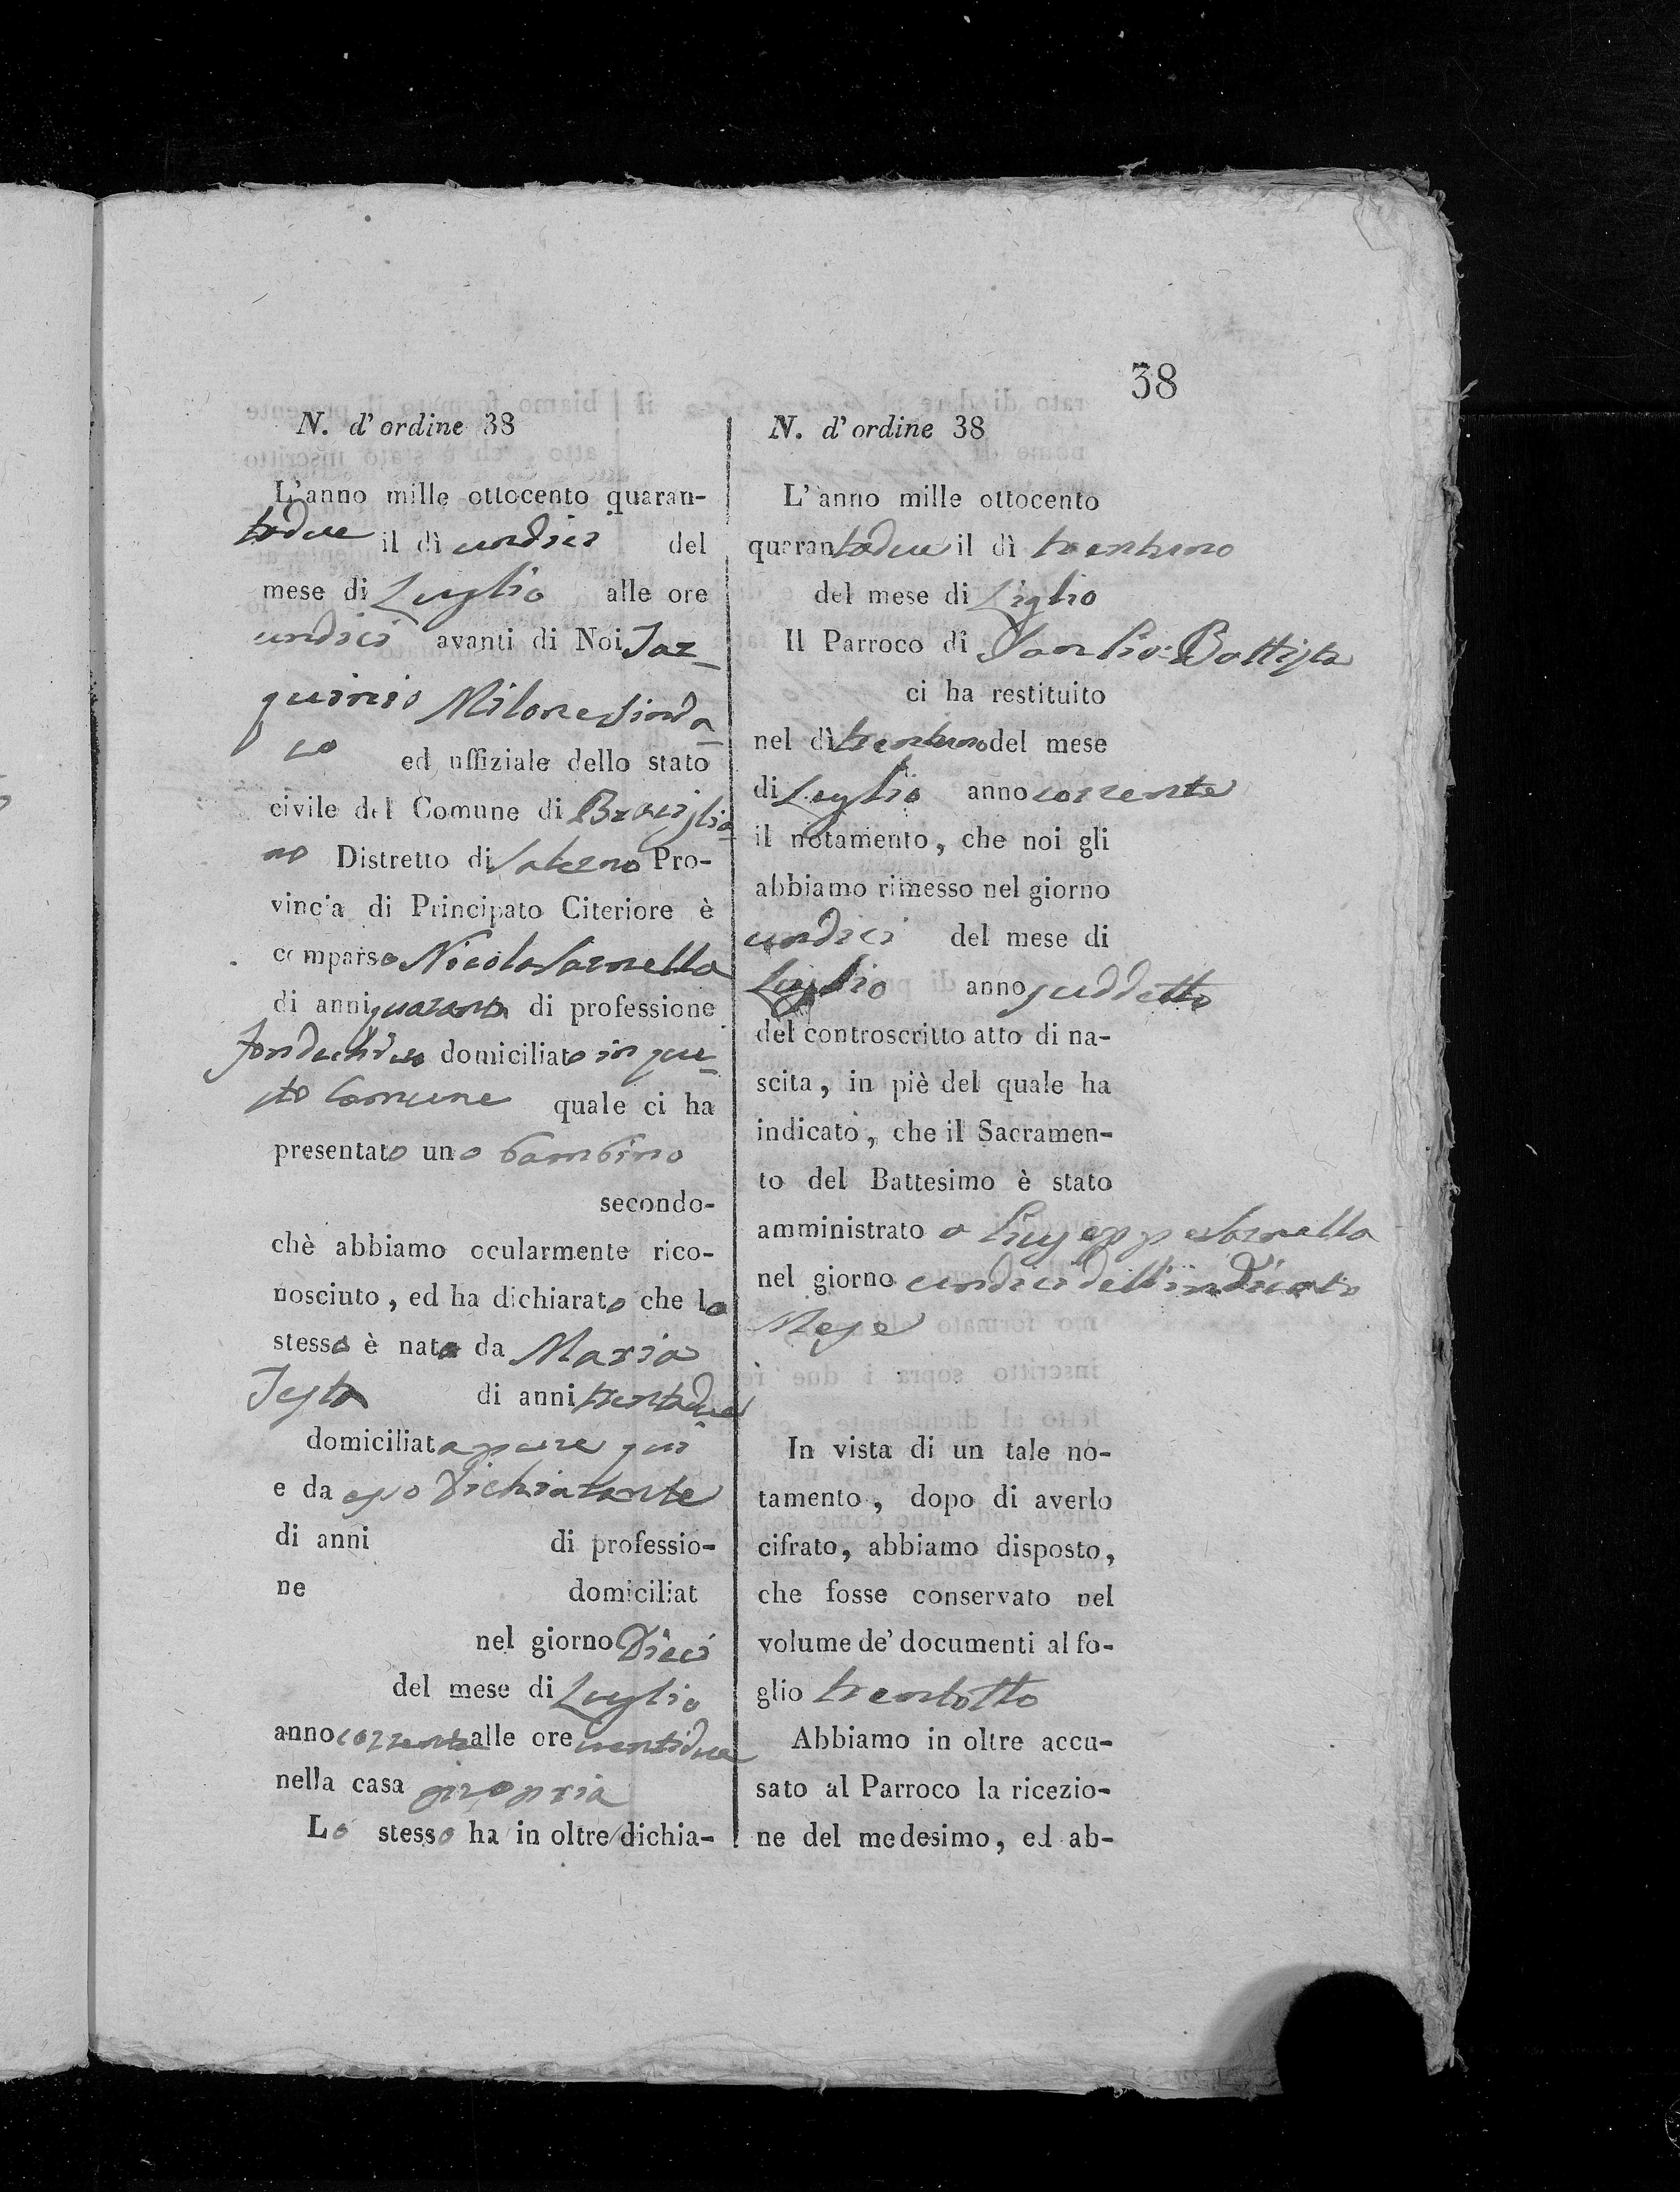 38
N. d'ordine 38
L'anno mille ottocento quaran-
tadue il dì undici del
mese di Luglio alle ore
undici avanti di Noi Tar_
quinio Milone Sinda_
co ed uffiziale dello stato
civile del Comune di Braciglia_
no Distretto di Salerno Pro-
vincia di Principato Citeriore è
comparso Nicola Sarnella
di anni quaranta di professione
domiciliato in que_
sto Comune quale ci ha
presentato uno bambino
secondo-
chè abbiamo ocularmente rico-
nosciuto, ed ha dichiarato che lo
stesso è nato da Maria
Testa di anni trentadue
domiciliata pure qui
e da esso Dichiarante
di anni di professio-
ne domiciliat
nel giorno Dieci
del mese di Luglio
anno corrente alle ore ventidue
nella casa propria
Lo stesso ha in oltre dichia-
N. d'ordine 38
L'anno mille ottocento
quarantadue il dì trentuno
del mese di Liglio
Il Parroco di San Gio: Battista
ci ha restituito
nel dì trentuno del mese
di Luglio anno corrente
il notamento, che noi gli
abbiamo rimesso nel giorno
undici del mese di
Luglio anno suddetto
del controscritto atto di na-
scita, in piè del quale ha
indicato, che il Sacramen-
to del Battesimo è stato
amministrato a Giuseppe Sarnella
nel giorno undici dell'indicato
Mese
In vista di un tale no-
tamento, dopo di averlo
cifrato, abbiamo disposto,
che fosse conservato nel
volume de' documenti al fo-
glio trentotto
Abbiamo in oltre accu-
sato al Parroco la ricezio-
ne del medesimo, ed ab-